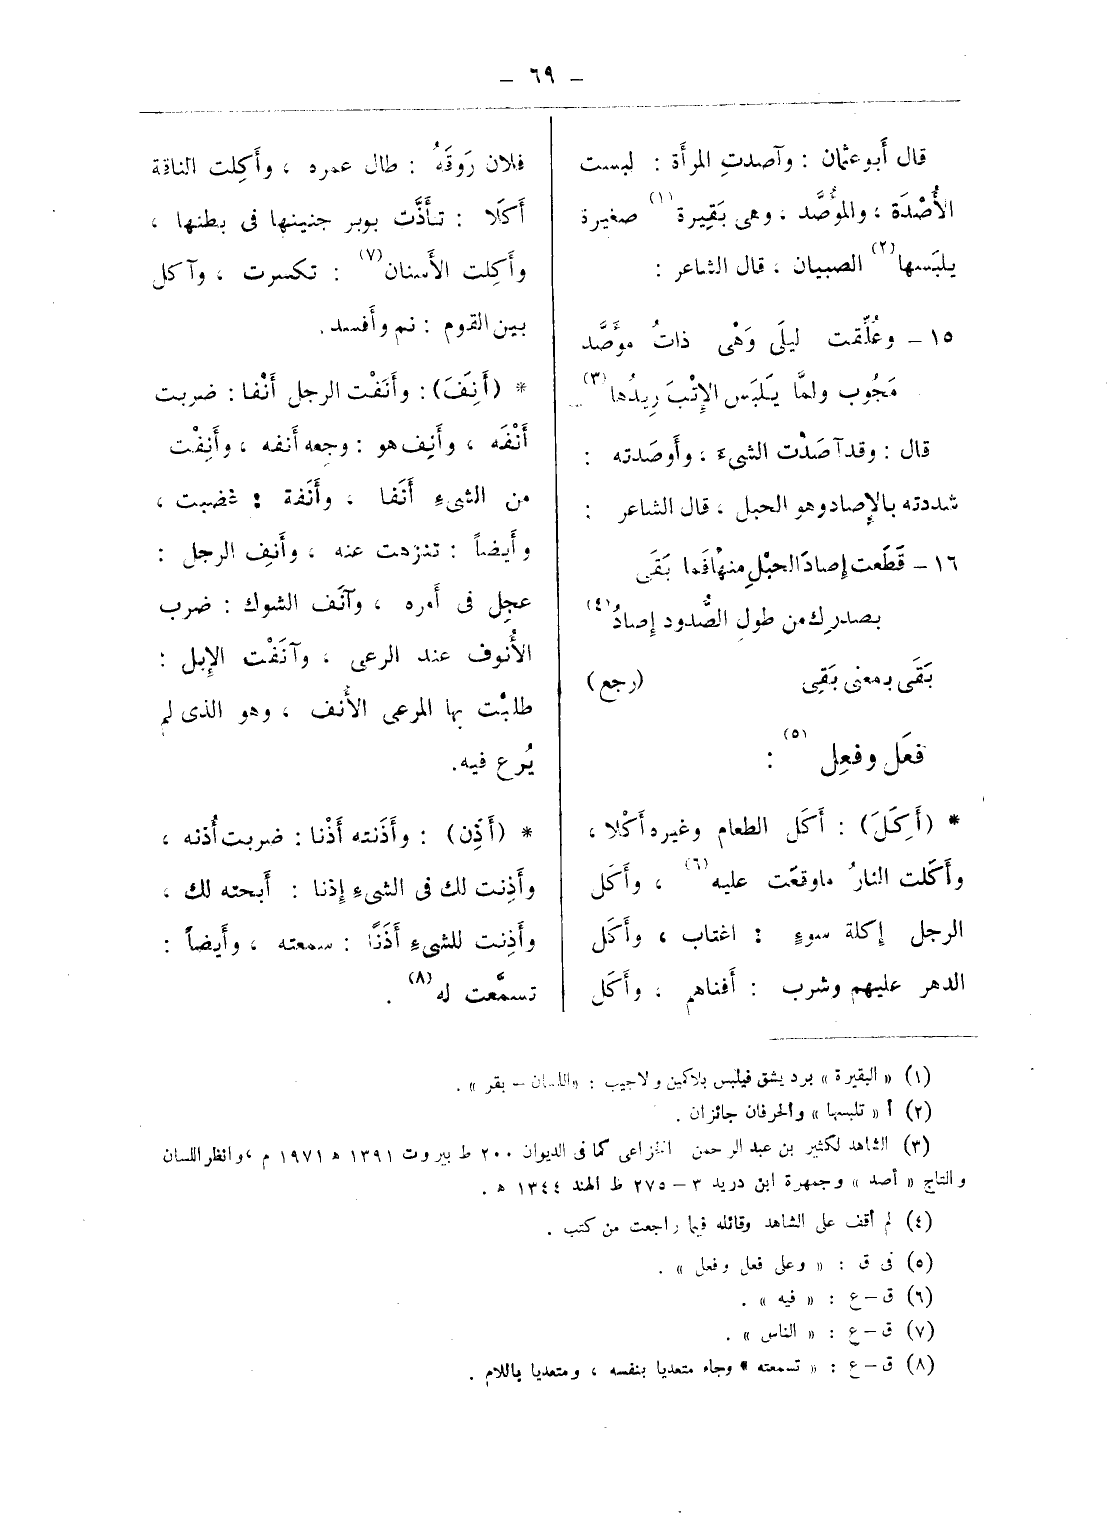 – ٦٩ –
قال أبو عثمان : وآصدتِ المرأة : لبست
الأُصْدَة ، والمؤُصَّد ، وهى بَقِيرة (١) صغيرة
يلبَسها (٢) الصبيان ، قال الشاعر :
١٥ – وعُلِّقت ليلَى وَهْى ذاتُ موَصَّد
مَجُوب ولمَّا يَلبَس الإِتْبَ رِيدُها (٣)
قال : وقد آصَدْت الشىءَ ، وأَوصَدته :
شددته بالإِصاد وهو الحبل ، قال الشاعر :
١٦ – قَطَعت إِصادَ الحبْلِ منها فَما بَقَى
بصدرِك من طول الصُّدود إِصادُ (٤)
بَقَى بمعنى بَقِى (رجع)
فعَل وفعِل (٥) :
* (أَكِلَ) : أَكَل الطعام وغيره أَكْلا ،
وأَكَلت النارُ ماوقعَت عليه (٦) ، وأَكَل
الرجل إِكلة سوءٍ : اغتاب ، وأَكَل
الدهر عليهم وشرب : أَفناهم ، وأَكَل
فلان رَوقَهُ : طال عمره ، وأَكِلت الناقة
أَكَلا : تأَذَّت بوبر جنينها فى بطنها ،
وأَكِلت الأَسنان (٧) : تكسرت ، وآكل
بين القوم : نم وأَفسد .
* (أَنِفَ) : وأَنَفْت الرجل أَنْفا : ضربت
أَنْفَه ، وأَنِف هو : وجعه أنفه ، وأَنِفْت
من الشىءِ أَنَفا ، وأَنَفة : غضبت ،
وأَيضاً : تنزهت عنه ، وأَنِف الرجل :
عجِل فى أَمره ، وآنَف الشوك : ضرب
الأُنوف عند الرعى ، وآنَفْت الإِبل :
طلبْت بها المرعى الأُنف ، وهو الذى لم
يُرع فيه.
* (أَذِن) : وأَذَنته أَذْنا : ضربت أُذنه ،
وأَذِنت لك فى الشىءِ إِذنا : أَبحته لك ،
وأَذِنت للشىءِ أَذَنًا : سمعته ، وأَيضاً :
تسمَّعت له (٨) .
(١) « البقيرة » برد يشق فيلبس بلاكمين ولاجيب : «اللسان – بقر » .
(٢) أ « تلبسها » والحرفان جائزان .
(٣) الشاهد لكثير بن عبد الرحمن الخزاعى كما فى الديوان ٢٠٠ ط بيروت ١٣٩١ ه ١٩٧١ م ، وانظر اللسان
والتاج « أصد » وجمهرة ابن دريد ٣ – ٢٧٥ ط الهند ١٣٤٤ ه .
(٤) لم أقف على الشاهد وقائله فيما راجعت من كتب .
(٥) فى ق : « وعلى فعل وفعل » .
(٦) ق – ع : « فيه » .
(٧) ق – ع : « الناس » .
(٨) ق – ع : « تسمعته » وجاء متعديا بنفسه ، ومتعديا باللام .